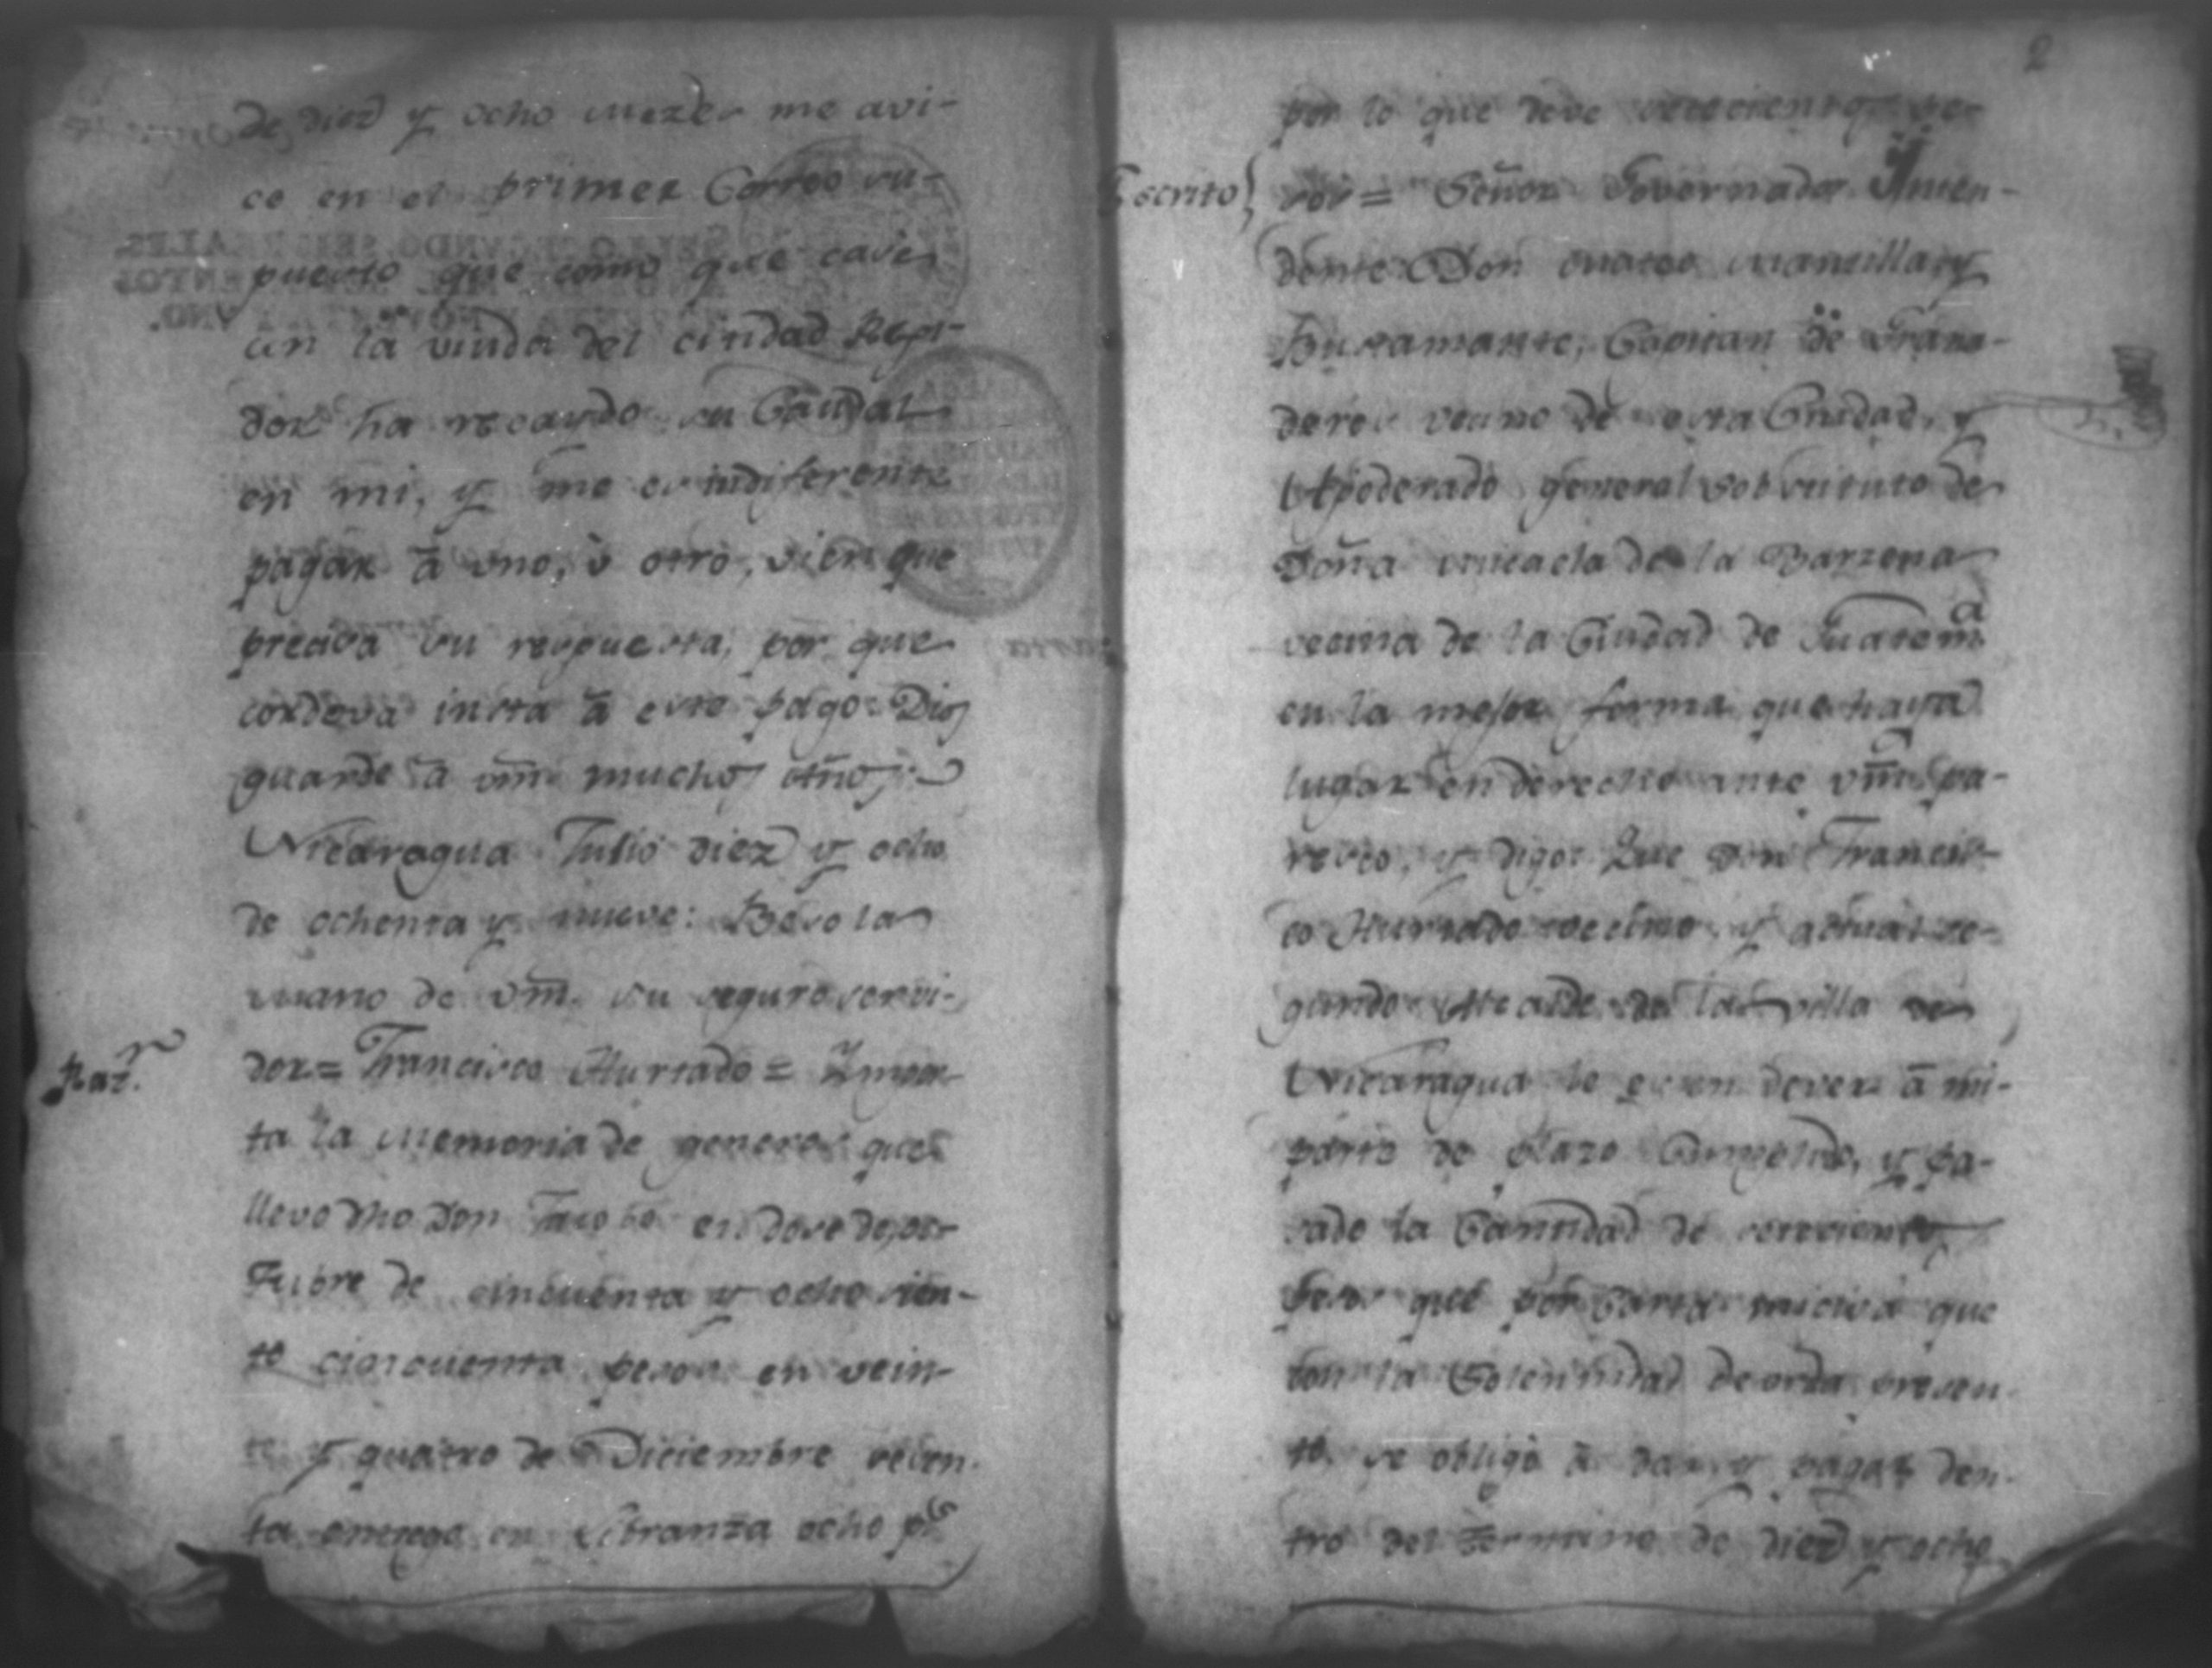 de diez y ocho mezes me avi-
ce en el primer Correo su-
puesto que como que cave
en la viuda del citdad Regi-
dor ha recaydo su Caudal
en mi, y me es indiferente
pagar â uno, ù otro, vien que
precisa su respuesta, por que
cordova insta â este pago. Dios
guarde â vm̃. muchos añ̃os
Nicaragua Julio diez y ocho
de ochenta y nueve: Beso la
mano de vm̃. su seguro servi-
Raz.n
dor = Francisco Hurtado = Impor-
ta la memoria de generos que
llevo dho Don en dose de, oc-
tubre de cinquenta y ocho cien-
to cincuenta pesos en vein-
te y quatro de Diciembre seten-
ta entrego en Libranza ocho ps
2
por lo que deve setecientos pe-
Escrito
sos = Señor Governador Inten-
dente Don Mateo Mansilla, y
Bustamante, Capitan de Grana-
deros vecino de esta Ciudad, y
Apoderado general sobstituto de
Doña Micaela de la Barzena
vecina de la Ciudad de Guatem.a
en la mejor forma que haya
lugar en derecho ante vm̃. pa-
resco, y digo: Que Don Francis-
co Hurtado vecino, y actual se-
gundo Alcalde de la villa de
Nicaragua le es en dever â mi
parte de plazo Cumplido, y pa-
sado la Cantidad de setecientos
pesos que por Carta misiva que
con la Solennidad devida presen-
to, se obligò â dar, y pagar den-
tro del termino de diez y ocho